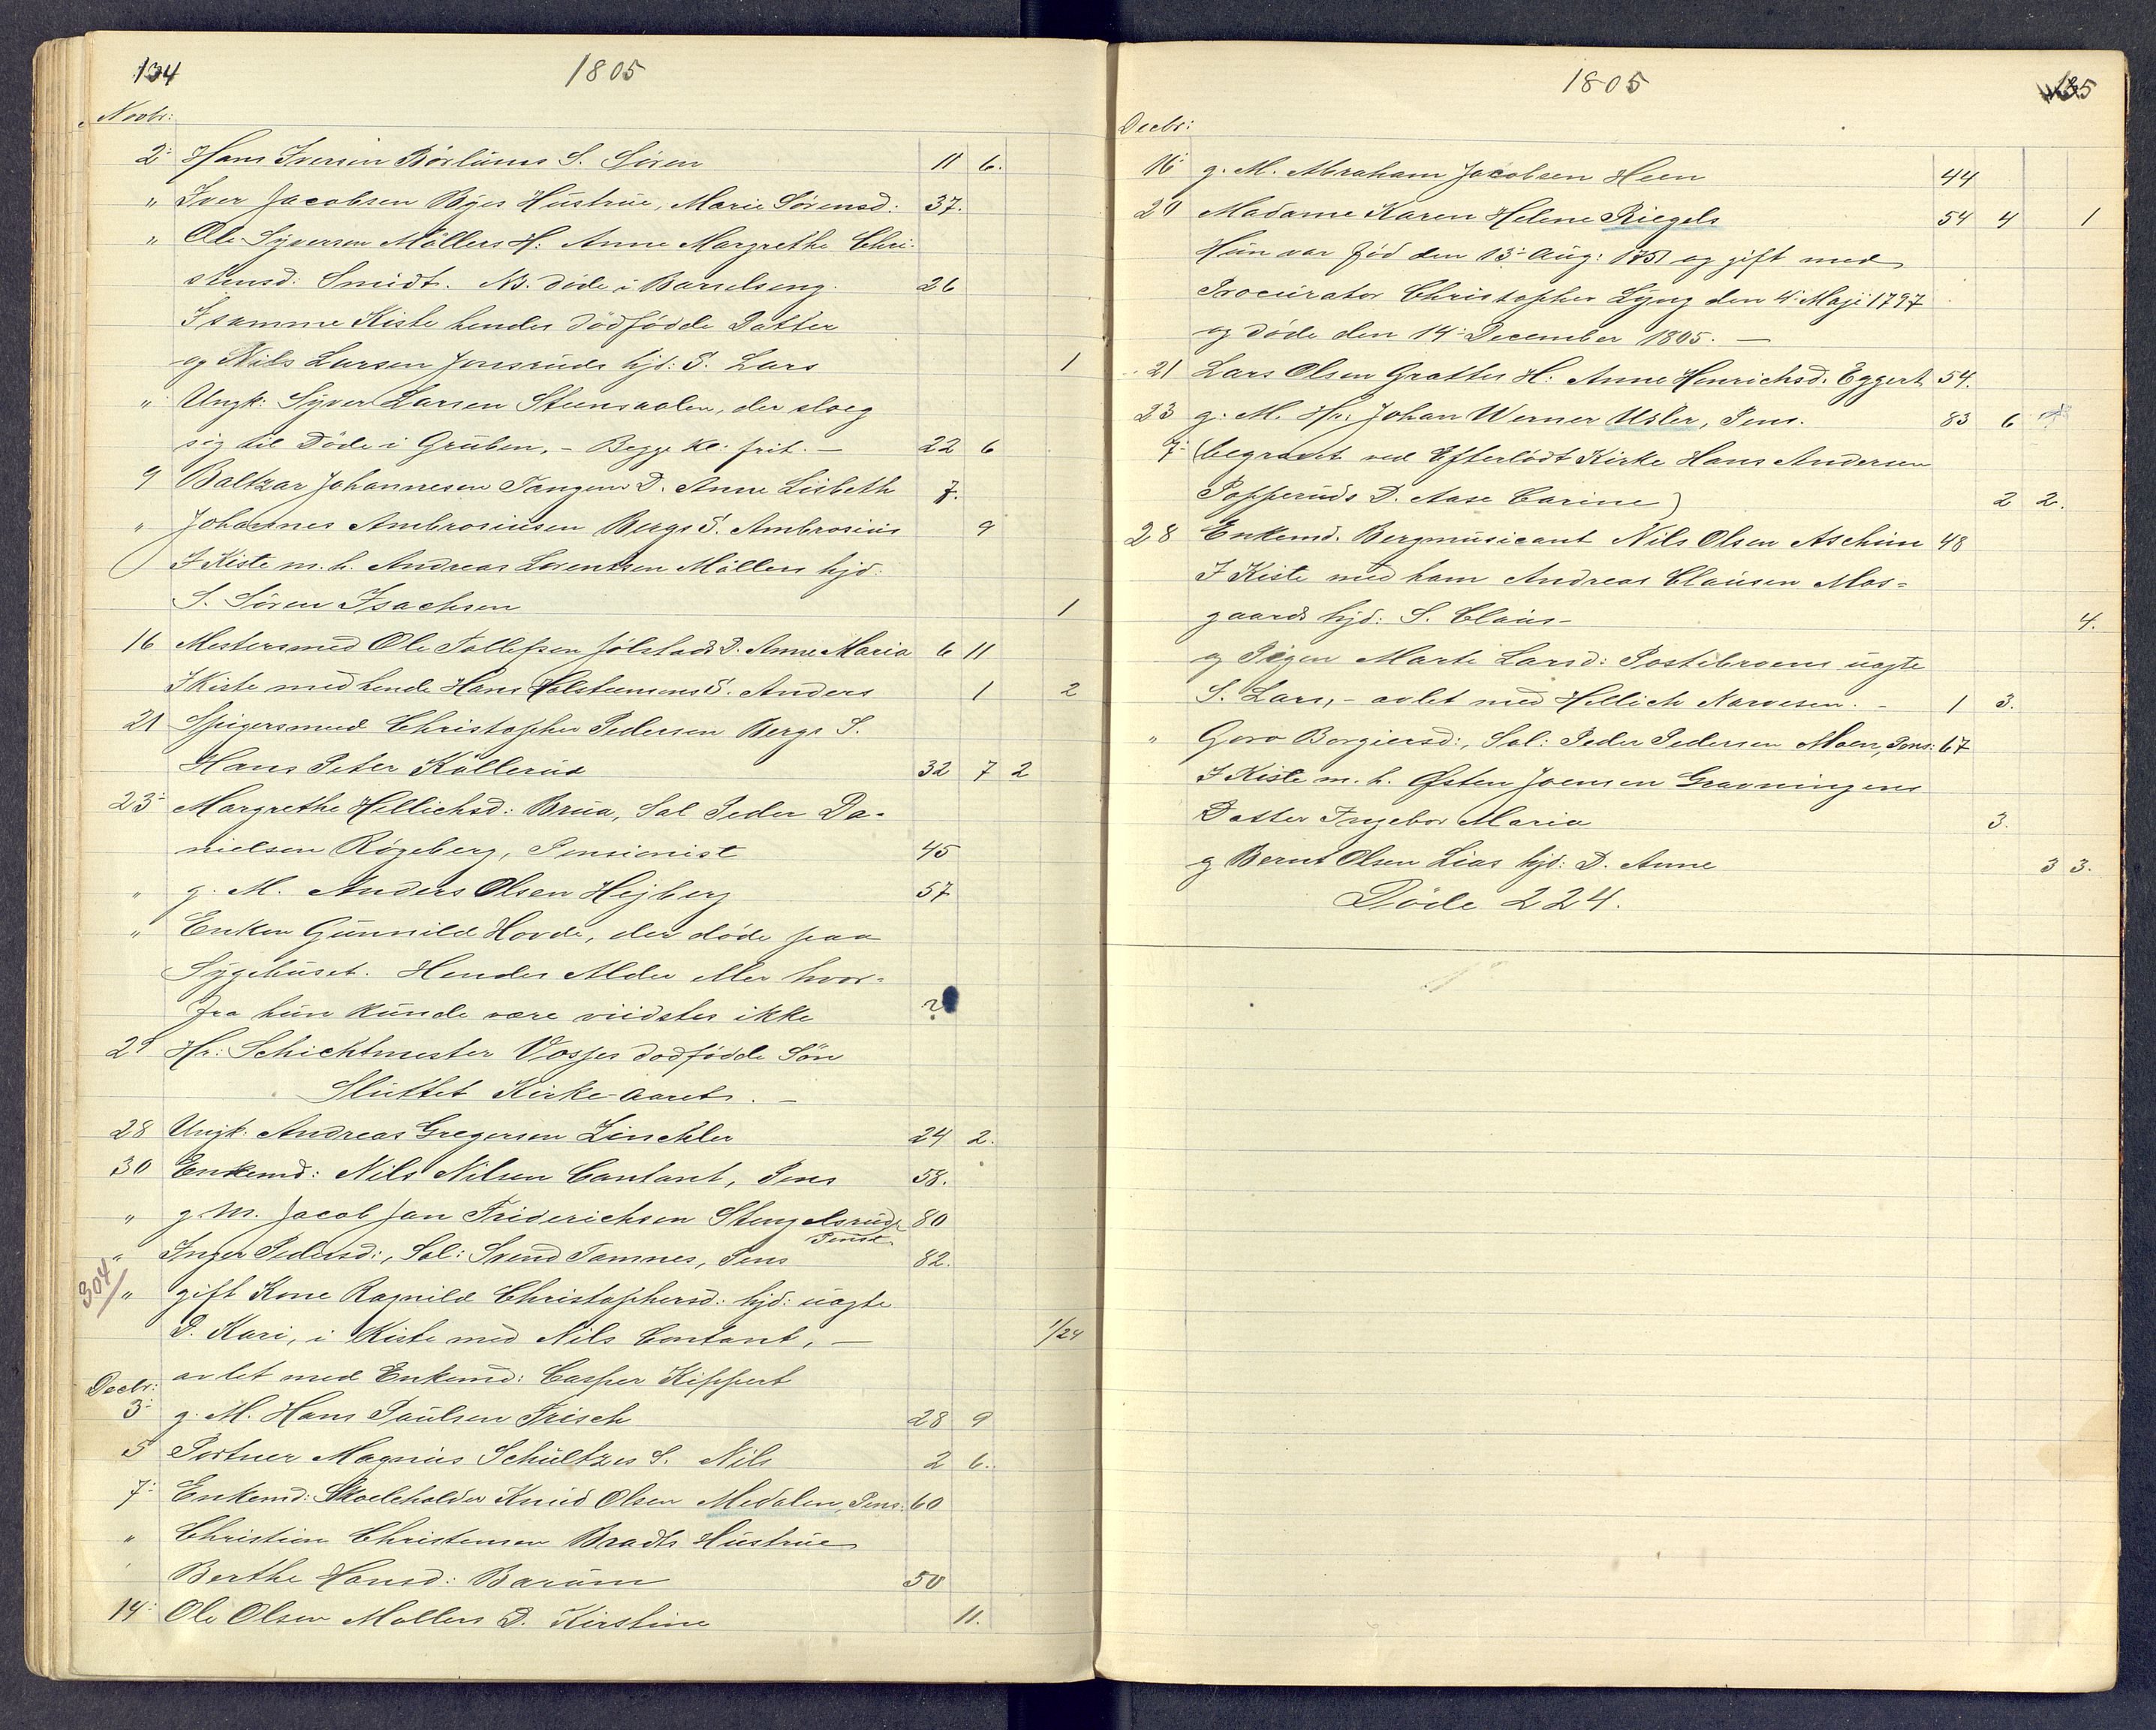 134 1805
Novbr:
2: Hans Iversen Börlums S. Sören 11 6.
" Iver Jacobsen Byes Hustrue, Marie Sörensd: 37.
" Ole Syversen Möllers H: Anne Margrethe Chri-
stensd: Smidt. NB. döde i Barselseng. 26
I samme Kiste hendes dödfödde Datter
og Nils Larsen Jonsruds hjd: S. Lars 1
" Ungk: Syver Larsen Steensaolen, der sloeg
sig til Döde i Gruben, - Begge Kl: frit. - 22 6
9 Baltzar Johannesen Tangens D. Anne Lisbeth 7.
" Johannes Ambrosiusen Bergs S. Ambrosius 9
I Kiste m. h. Andreas Lorentsen Möllers hjd:
S. Sören Isachsen 1
16 Mestersmed Ole Tollefsen Jölstads D. Anne Maria 6 11
I Kiste med hende Hans Holsteensens S. Anders 1 2
21 Spigersmed Christopher Pedersen Bergs S.
Hans Peter Köllerud 32 7 2
23: Margrethe Hellichsd: Brua, Sal Peder Da-
nielsen Rögeberg, Pensionist 45
" g. M. Anders Olsen Hejberg 57
" Enken Gunnild Hovde, der döde paa
Sygehuset. Hendes Alder eller hvor-
fra hun kunde være viidstes ikke ?
29 Hr: Schichtmester Vosses dodfödde Sön
Sluttet Kirke-Aaret. -
28 Ungk. Andreas Gregersen Linchler 24 2.
30 Enkemd: Nils Nilsen Contant, Pens 58.
" g. M. Jacob Jan Friderichsen Stengelsrud, 80
Penst.
" Inger Pedersd:, Sal: Svend Tamnes, Pens 82.
304/
" gift Kone Ragnild Christophersd: hjd: uægte
D. Kari, i Kiste med Nils Contant, - 1/24
avlet med Enkemd: Casper Kippert
Decbr:
3: g. M. Hans Paulsen Frisch 28 9
5 Portner Magnus Schultzes S. Nils 2 6.
7: Enkemd: Skoeleholder Knud Olsen Medalen, Pens: 60
" Christian Christensen Bradts Hustrue
Berthe Hansd: Barum 50
14: Ole Olsen Mollers D. Kirstine 11.
1805 135
Decbr:
16: g. M. Abraham Jacobsen Heen 44
20 Madame Karen Helene Riegels 54 4 1
Hun var fød den 13: Aug: 1751 og gift med
Procurator Christopher Lyng den 4: Maji 1797
og döde den 14: December 1805. -
21 Lars Olsen Grattes H: Anne Henrichsd. Eggert 54.
23 g. M. Hr: Johan Werner Usler, Pens. 83 6
7: (begravet ved Efterlödt Kirke Hans Andersen
Popperuds D. Aase Carine) 2 2.
28 Enkemd. Bergmusicant Nils Olsen Aschim 48
I Kiste med ham Andreas Clausen Mos-
gaards hjd: S. Claus - 4.
og Pigen Marte Larsd: Postebroens uægte
S. Lars, - avlet med Hellich Narvesen. - 1 3.
" Goro Borgiersd:, Sal: Peder Pedersen Moen, Pens: 67
I Kiste m. h. Østen Joensen Gravningens
Datter Ingebor Maria 3.
og Bernt Olsen Lias hjd: D. Anne 3 3.
Döde 224.